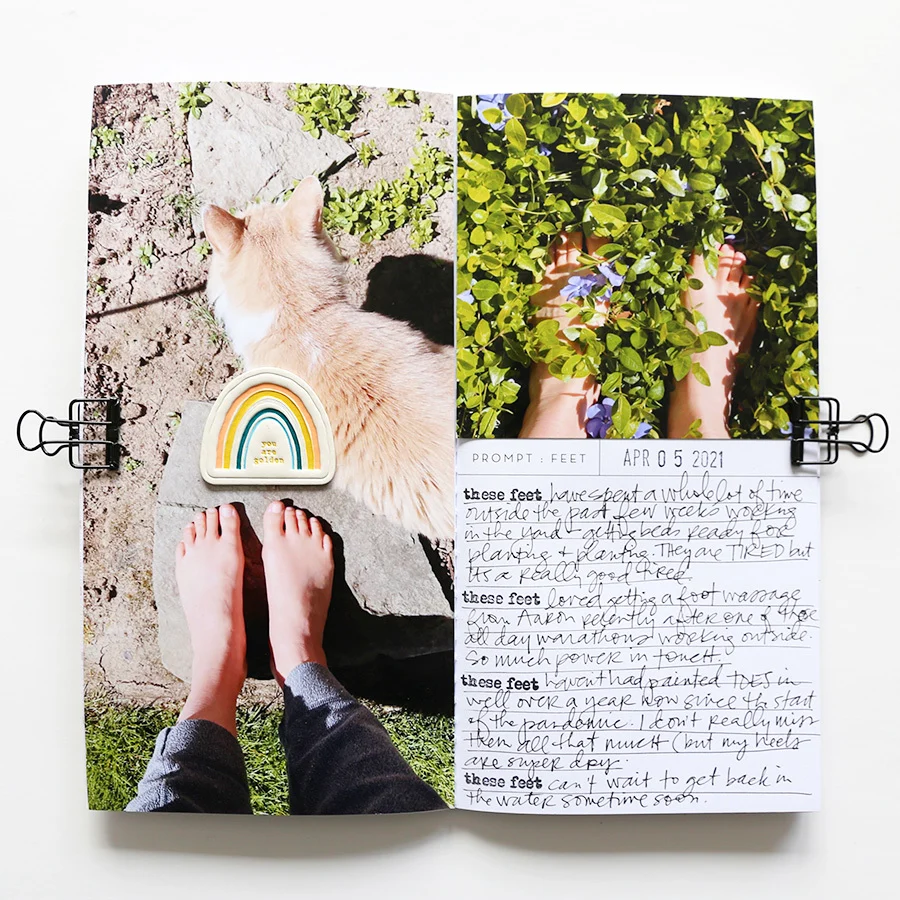 you
are
golden
PROMPT : FEET
APR 05 2021
these feet have spent a whole lot of time
outside the past few weeks working
in the yard - getting beds ready for
planting + planting. They are TIRED but
its a really good tired.
these feet loved getting a foot massage
from Aaron recently after one of those
all day marathons working outside.
So much power in touch.
these feet haven't had painted TOES in
well over a year now since the start
of the pandemic. I don't really miss
them all that much (but my heels
are super dry.
these feet can't wait to get back in
the water sometime soon.